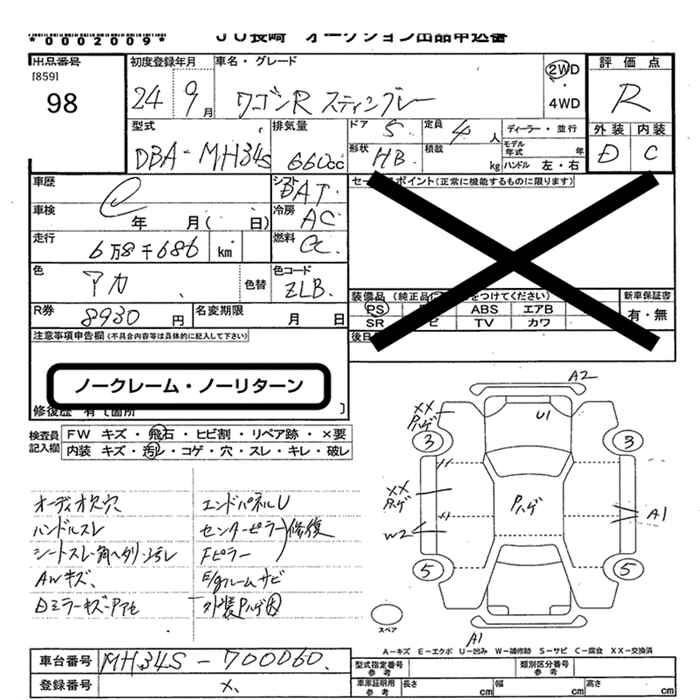 *0002009*
JU長崎 オークション出品申込書
出品番号
[859]
98
初度登録年月
24 9月
車名・グレード
ワゴンR スティングレー
2WD
・
4WD
評価点
R
外装 内装
D C
型式
DBA-MH34S
排気量
660cc
ドア 5
定員 4人
形状 HB
積載 kg
ディーラー・並行
モデル年式 年
ハンドル 左・右
車歴
車検 年 月( 日)
走行 6万8千686 km
シフト DAT
冷房 AC
燃料
色 アカ
色替
色コード ZLB
R券 8930円
名変期限 月 日
セールスポイント(正常に機能するものに限ります)
装備品(純正品に をつけてください)
PS ABS エアB
SR TV カワ
新車保証書
有・無
後日
注意事項申告欄(不具合内容等は具体的に記入して下さい)
ノークレーム・ノーリターン
修復歴 有て箇所
検査員記入欄
FW キズ・飛石・ヒビ割・リペア跡・×要
内装 キズ・汚レ・コゲ・穴・スレ・キレ・破レ
オーディオ欠穴
ハンドルスレ
AWキズ
エンドパネルU
センターピラー 修復
Fピラー
E/gルームサビ
外装Pハゲ大
A2
XX
Pハゲ
U1
3
3
XX
Pハゲ
Pハゲ
A1
W2
5
5
スペア
A1
A-キズ E-エクボ U-凹み W-補修跡 S-サビ C-腐食 XX-交換済
車台番号 MH34S-700060
登録番号 ×
型式指定番号 参考
類別区分番号 参考
車庫証明用 参考 長さ cm 幅 cm 高さ cm